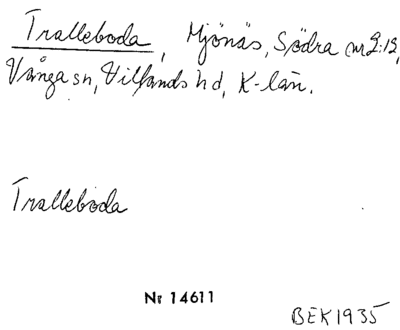 Tralleboda, Mjönäs, Södra nr 2:12,
Vånga sn, Villands hd, K-län.
Tralleboda
Nr 14611
BEK 1935